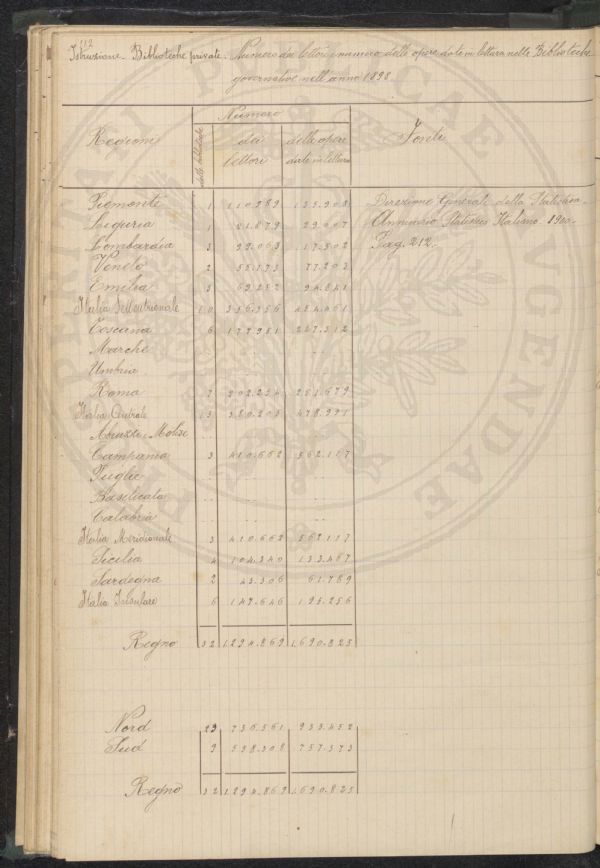 112
Istruzione - Biblioteche private - Numero dei lettori e numero delle opere date in lettura nelle Biblioteche
governative nell'anno 1898
Numero
Regioni delle biblioteche dei lettori delle opere date in lettura Fonti
Piemonte 1 110.289 125.908 Direzione Generale della Statistica -
Liguria 1 21.879 29.007 Annuario Statistico Italiano 1900 -
Lombardia 3 99.063 117.502 Pag. 212 -
Veneto 2 55.173 77.203
Emilia 3 69.252 94.841
Italia Settentrionale 10 356.356 454.461
Toscana 6 177.981 227.312
Marche
Umbria
Roma 7 202.224 251.679
Italia Centrale 13 380.205 478.991
Abruzzi e Molise
Campania 3 410.662 562.117
Puglie
Basilicata
Calabria
Italia Meridionale 3 410.662 562.117
Sicilia 4 104.340 133.467
Sardegna 2 43.306 61.789
Italia Insulare 6 147.646 195.256
Regno 32 1,294.869 1,690.825
Nord 23 736.561 933.452
Sud 9 558.308 757.373
Regno 32 1,294.869 1,690.825
PERITATI PUBLICAE AUGENDAE